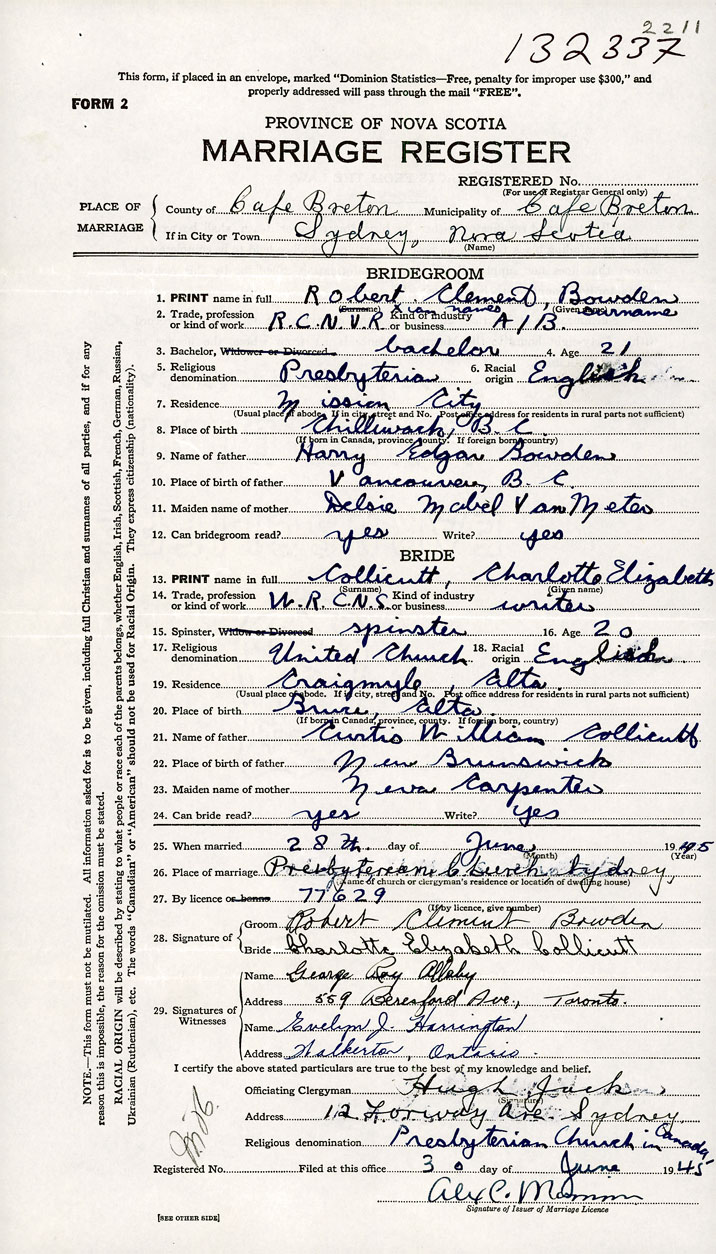 2211
132337
This form, if placed in an envelope, marked "Dominion Statistics—Free, penalty for improper use $300," and
properly addressed will pass through the mail "FREE".
FORM 2
PROVINCE OF NOVA SCOTIA
MARRIAGE REGISTER
REGISTERED No.
(For use of Registrar General only)
PLACE OF MARRIAGE
County of Cape Breton Municipality of Cape Breton
If in City or Town Sydney, Nova Scotia
(Name)
BRIDEGROOM
1. PRINT name in full Robert Clement, Bowden
(Surname) Xian names (Given name) surname
2. Trade, profession or kind of work R.C.N.V.R. Kind of industry or business A/B.
3. Bachelor, Widower or Divorced bachelor 4. Age 21
5. Religious denomination Presbyterian 6. Racial origin English
7. Residence Mission City
(Usual place of abode. If in city, street and No. Post office address for residents in rural parts not sufficient)
8. Place of birth Chilliwack, B.C.
(If born in Canada, province, county. If foreign born, country)
9. Name of father Harry Edgar Bowden
10. Place of birth of father Vancouver, B.C.
11. Maiden name of mother Delsie Mabel Van Meter
12. Can bridegroom read? yes Write? yes
BRIDE
13. PRINT name in full Collicutt, Charlotte Elizabeth
(Surname) (Given name)
14. Trade, profession or kind of work W.R.C.N.S. Kind of industry or business writer
15. Spinster, Widow or Divorced spinster 16. Age 20
17. Religious denomination United Church 18. Racial origin English
19. Residence Craigmyle, Alta.
(Usual place of abode. If in city, street and No. Post office address for residents in rural parts not sufficient)
20. Place of birth Alta.
(If born in Canada, province, county. If foreign born, country)
21. Name of father Curtis William Collicutt
22. Place of birth of father New Brunswick
23. Maiden name of mother Neva Carpenter
24. Can bride read? yes Write? yes
25. When married 28th. day of June 1945
(Month) (Year)
26. Place of marriage Presbyterian Church Sydney,
(Name of church or clergyman's residence or location of dwelling house)
27. By licence or banns 77629
(If by licence, give number)
28. Signature of
Groom Robert Clement Bowden
Bride Charlotte Elizabeth Collicutt
29. Signatures of Witnesses
Name George Roy
Address 559 Beresford Ave., Toronto.
Name Evelyn J. Harrington
Address Walkerton, Ontario.
I certify the above stated particulars are true to the best of my knowledge and belief.
Officiating Clergyman Hugh Jack
(Signature)
Address 12 Ave Sydney
Religious denomination Presbyterian Church in Canada
Registered No. Filed at this office 30 day of June 1945
Alex C.
Signature of Issuer of Marriage Licence
[SEE OTHER SIDE]
NOTE.—This form must not be mutilated. All information asked for is to be given, including full Christian and surnames of all parties, and if for any
reason this is impossible, the reason for the omission must be stated.
RACIAL ORIGIN will be described by stating to what people or race each of the parents belongs, whether English, Irish, Scottish, French, German, Russian,
Ukrainian (Ruthenian), etc. The words "Canadian" or "American" should not be used for Racial Origin. They express citizenship (nationality).